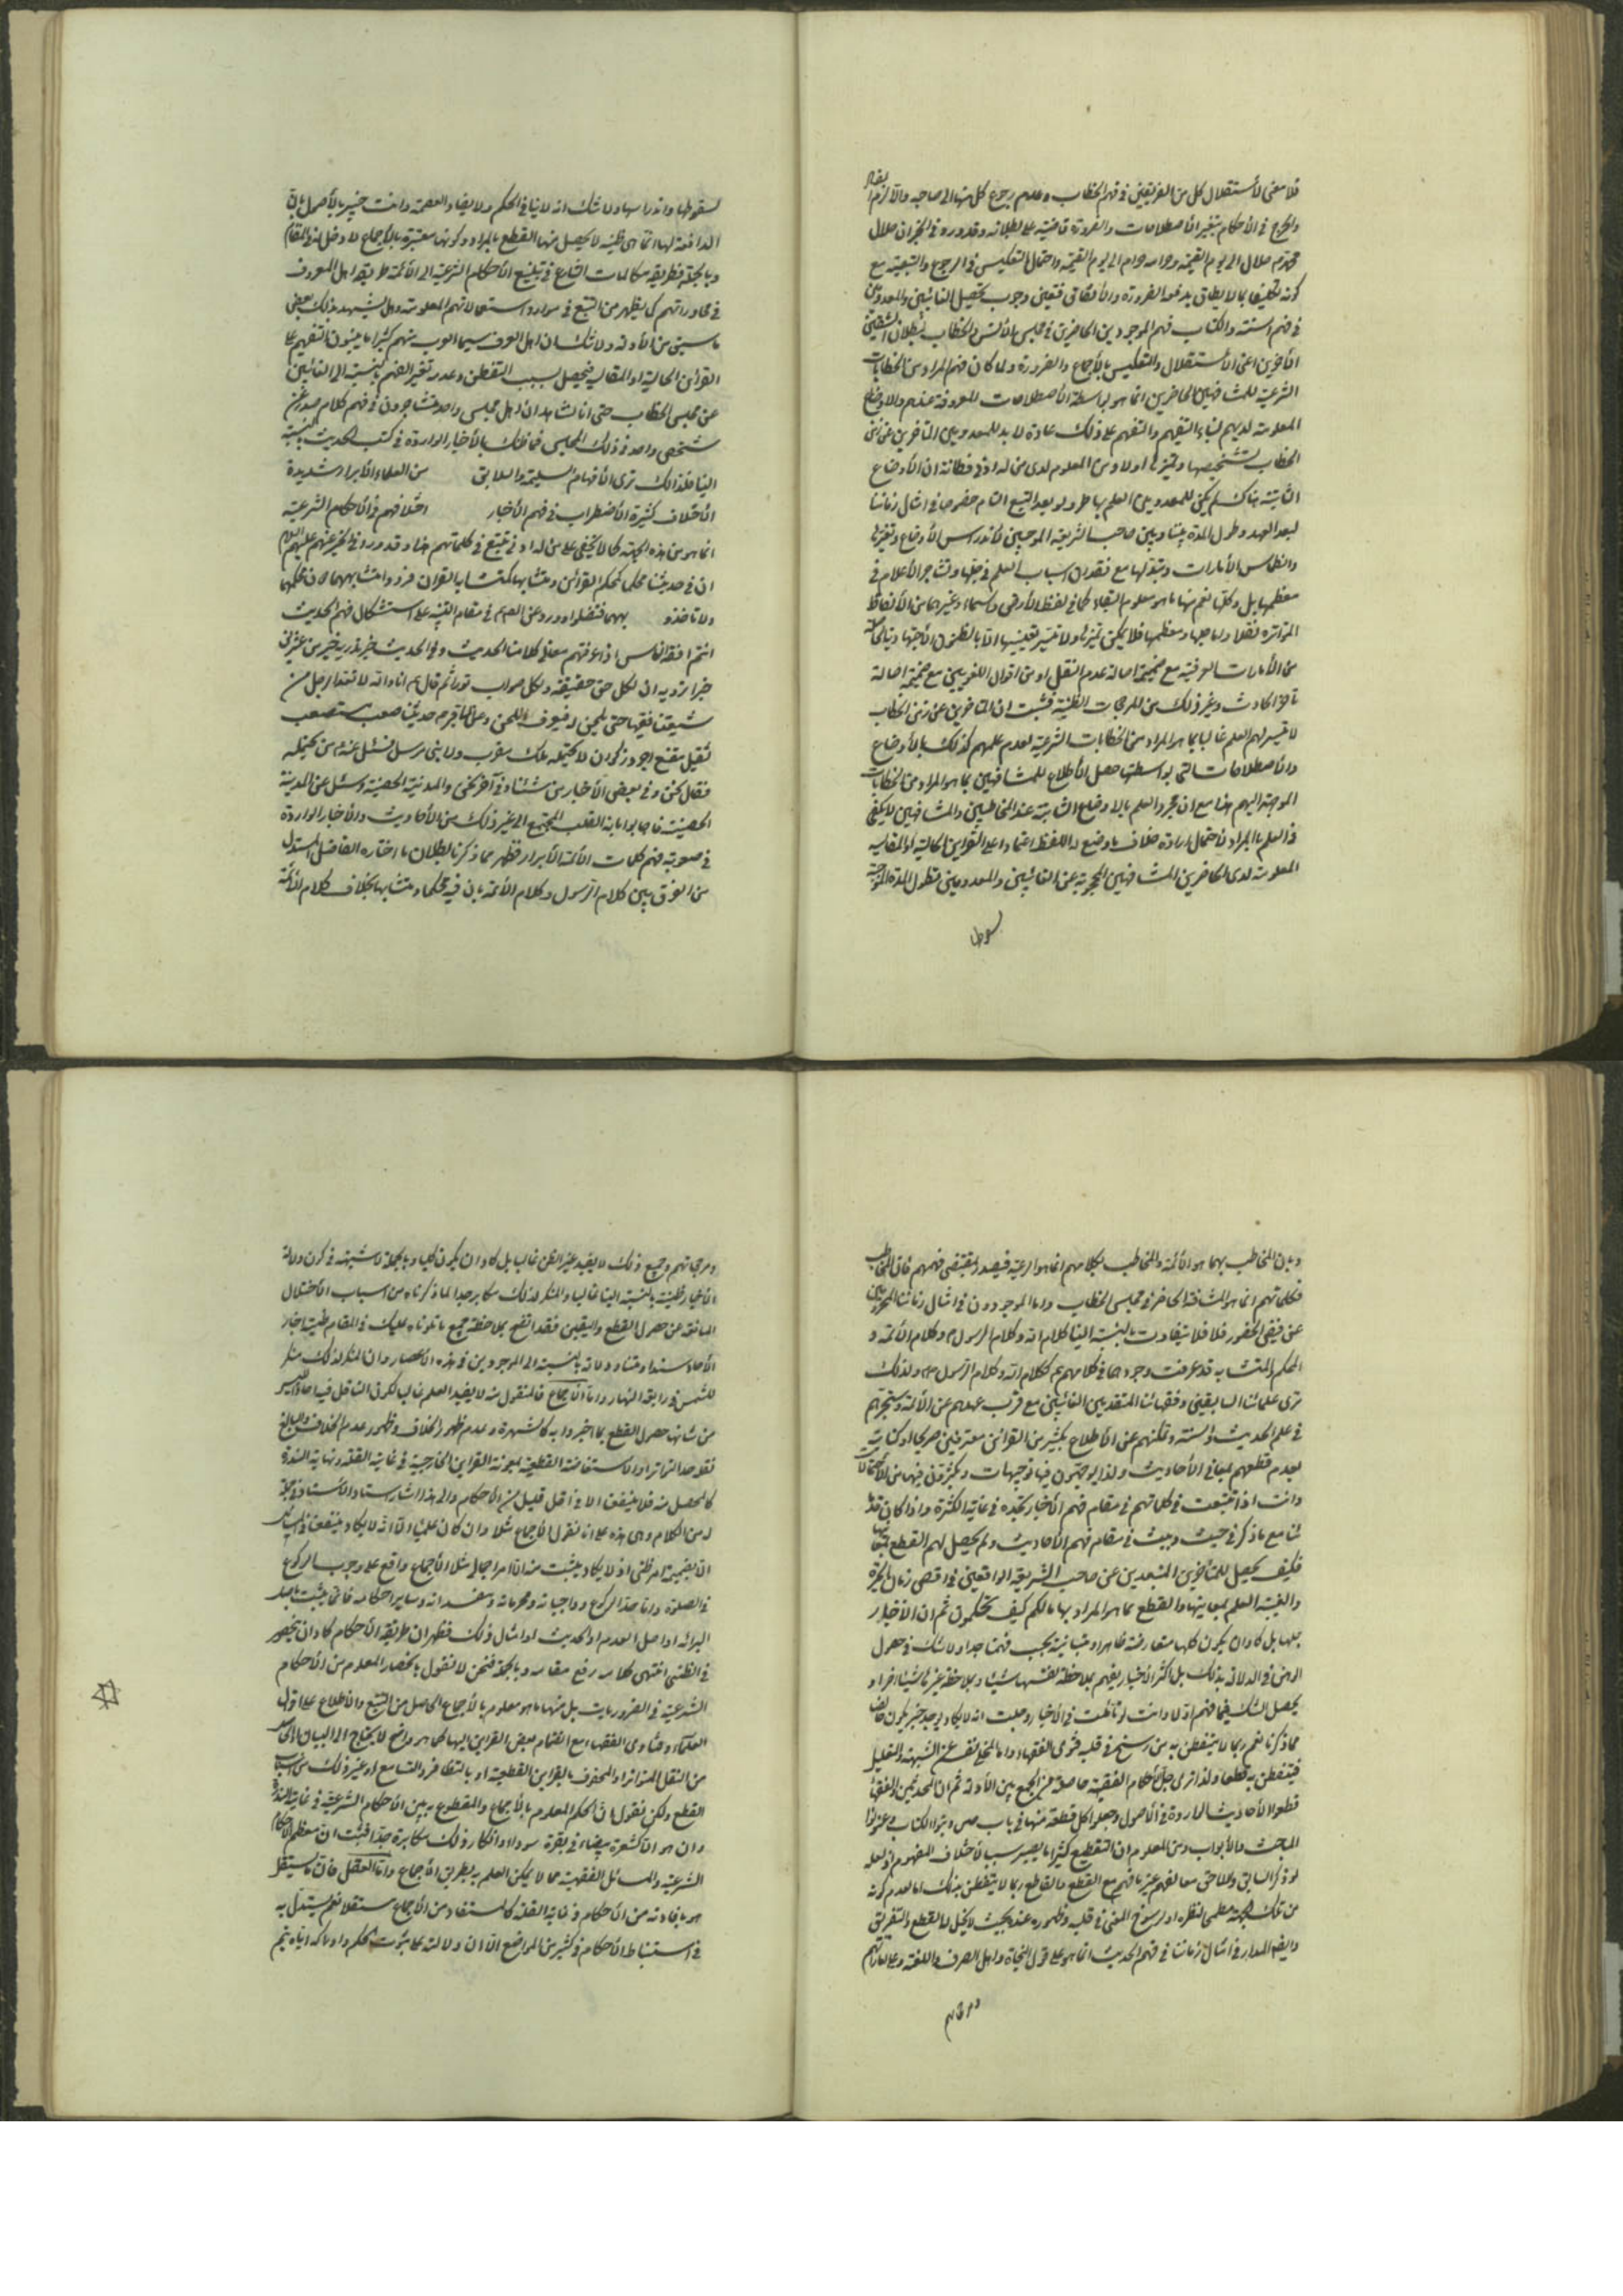 فلا معنى لاستقلال كل من الفريقين في فهم الخطاب وعدم رجوع كل منهما الى صاحبه والا لزم
والحرج في الأحكام بتغير الأصطلاحات والضرورة قاضية على بطلانه وقد ورد في الخبر ان حلال
محمد ص حلال الى يوم القيمة وحرامه حرام الى يوم القيمة واحتمال التعكيس في الرجوع والتبعية مع
كونه تكليفا بما لا يطاق يدفعه الضرورة والأتفاق فتعين وجوب تحصيل الغائبين والمعدومين
في فهم السنة والكتاب فهم الموجودين الحاضرين في مجلس الأنس والخطاب لبطلان الشقين
الأخرين اعنى الأستقلال والتعكيس بالأجماع والضرورة ولما كان فهم المراد من الخطابات
الشرعية للمشافهين الحاضرين انما هو بواسطة الأصطلاحات المعروفة عندهم والاوضاع
المعلومة لديهم لبناء التفهيم والتفهم على ذلك عادة لا بد للمعدومين المتأخرين عن زمن
الخطاب تشخيصها وتميزها اولا ومن المعلوم لدى من له ادنى فطانة ان الأوضاع
الثابتة هناك لم يمكن للمعدومين العلم بها طرا ولو بعد التتبع التام خصوصا في امثال زماننا
لبعد العهد وطول المدة بيننا وبين صاحب الشريعة الموجبين لاندراس الأوضاع وتغيرها
وانطماس الأمارات وتبدلها مع فقدان اسباب العلم في جلها وتشاجر الأعلام في
معظمها بل وكلها نعم منها ما هو معلوم البقاء كما في لفظ الأرض والسماء وغيرهما من الألفاظ
المتواترة نقلا واما جلها ومعظمها فلا يمكن تميزها ولا يتيسر تعيينها الا بالظنون الأجتهادية الحاصلة
من الأمارات العرفية مع ضميمة اصالة عدم النقل او من اقوال اللغويين مع ضميمة اصالة
تأخر الحادث وغير ذلك من المرجحات الظنية فثبت ان المتأخرين عن زمن الخطاب
لا يتيسر لهم العلم غالبا بما هو المراد من الخطابات الشرعية لعدم علمهم كذلك بالأوضاع
والأصطلاحات التي بواسطتها حصل الأطلاع للمشافهين بما هو المراد من الخطابات
الموجهة اليهم هذا مع ان مجرد العلم بالاوضاع الثابتة عند المخاطبين والمشافهين لا يكفي
في العلم بالمراد لاحتمال ارادة خلاف ما وضع له اللفظ اعتمادا على القراين الحالية او المقالية
المعلومة لدى الحاضرين المشافهين المحجوبة عن الغائبين والمعدومين فطول المدة الموجبة
لسقوطها
لسقوطها واندراسها ولا شك انه لا ينافي الحكم ولا يضاد العصمة وانت خبير بالأصول بان
الدافعة لها انما هي ظنية لا يحصل منها القطع بالمراد وكونها معتبرة بالإجماع لا دخل له في المقام
وبالجملة فطريقة مكالمات الشارع في تبليغ الأحكام الشرعية الى الأئمة طريقة اهل العرف
في محاوراتهم كما يظهر من التتبع في موارد استعمالاتهم المعلومة وهل يشهد بذلك بعض
ما سبق من الأدلة ولا شك ان اهل العرف سيما العرب منهم كثيرا ما يبنون التفهيم على
القرائن الحالية او المقالية فيحصل بسبب التفطن وعدمه تغير الفهم بالنسبة الى الغائبين
عن مجلس الخطاب حتى انا نشاهد ان اهل مجلس واحد يتشاجرون في فهم كلام صدر عن
شخص واحد في ذلك المجلس فما ظنك بالأخبار الواردة في كتب الحديث بالنسبة
الينا فلذلك ترى الأفهام السليمة والسلايق من العلماء الأبرار شديدة
الأختلاف كثيرة الأضطراب في فهم الأخبار اختلافهم في الأحكام الشرعية
انما هو من هذه الجهة كما لا يخفى على من له ادنى تتبع في كلماتهم هذا وقد ورد في الخبر عنهم عليهم السلام
ان في حديثنا محكما كمحكم القرآن ومتشابها كمتشابه القران فردوا متشابهها الى محكمها
ولا تأخذوا بهما فتضلوا وورد عن الص ع في مقام التنبيه على استشكال فهم الحديث
انتم افقه الناس اذا عرفتم معانى كلامنا الحديث وفي الحديث خبر تدريه خير من عشر
خبرا ترويه ان لكل حق حقيقة ولكل صواب نورا ثم قال ع انا والله لا نعد الرجل من
شيعتنا فقيها حتى يلحن له فيعرف اللحن وعن الباقر ع حديثنا صعب مستصعب
ثقيل مقنع اجرد ذكوان لا يحتمله ملك مقرب ولا نبى مرسل فسئل عنه من يحتمله
فقال نحن وفي بعض الأخبار من شئنا وفي آخر نحن والمدينة الحصينة وسئل عن المدينة
الحصينة فاجابوا بانه القلب المجتمع الى غير ذلك من الأحاديث والأخبار الواردة
في صعوبة فهم كلمات الأئمة الأبرار فظهر مما ذكرنا بطلان ما اختاره الفاضل المستدل
من الفرق بين كلام الرسول وكلام الأئمة بان فيه محكما ومتشابها بخلاف كلام الأئمة
وبان المخاطب بهما هو الأئمة والمخاطب بكلامهم انما هو الرعية فيصدر بمقتضى فهمهم فان المخاطب
بكلماتهم انما هو المشافه الحاضر في مجلس الخطاب واما الموجودون في امثال زماننا المحرومين
عن فيض الحضور فلا يتفاوت بالنسبة الينا كلام الله وكلام الرسول ص وكلام الأئمة و
المحكم والمتشابه قد عرفت وجودهما في كلامهم ع ككلام الله وكلام الرسول ص ولذلك
ترى علمائنا السابقين وفقهائنا المتقدمين الغائبين مع قرب عهدهم عن الأئمة وتبحرهم
في علم الحديث والسنة وتمكنهم عن الأطلاع بكثير من القرائن معترفين صريحا او كناية
بعدم قطعهم بمعاني الأحاديث ولذا يوجهون فيها توجيهات ويكثرون فيها من الأحتمالات
وانت اذا تتبعت في كلماتهم في مقام فهم الأخبار تجده في غاية الكثرة واذا كان قد
ئنا مع ما ذكر في حيث وبيث في مقام فهم الأحاديث ولم يحصل لهم القطع بمعانيها
فكيف يحصل للمتأخرين المتبعدين عن صاحب الشريعة الواقعين في اقصى زمان الحيرة
والغيبة العلم بمعاينها والقطع بما هو المراد بها ما لكم كيف تحكمون ثم ان الأخبار
جلها بل كاد ان يكون كلها متعارضة ظاهرا ومتباينة بحسب فهمنا جدا ولا شك في حصول
الوهن في الدلالة بذلك بل اكثر الأخبار يفهم بملاحظة نفسها شيئا وبملاحظة غيرها شيئا اخر او
يحصل الشك فيما فهم اولا وانت لو تأملت في الأخبار وجدت انه لا يكاد يوجد خبر يكون خاليا
مما ذكرنا نعم ربما لا يتفطن به من رسخ في قلبه فتوى الفقهاء واما المخلى نفسه عن الشبهة والتقليد
فيتفطن به قطعا ولذا ترى جل الأحكام الفقهية حاصلة من الجمع بين الأدلة ثم ان المحدثين والفقهاء
قطعوا الأحاديث الواردة في الأصول وجعلوا كل قطعة منها في باب حين دونوا الكتاب وعنونوا
المبحث والأبواب ومن المعلوم ان التقطيع كثيرا ما يصير سببا لأختلاف المفهوم اذ لعله
لو ذكر السابق واللاحق معا لفهم غير ما فهم مع القطع والقاطع ربما لا يتفطن بذلك اما لعدم كونه
من تلك الجهة مطمح لنظره او لرسوخ المعنى في قلبه وظهوره عنده بحيث لا يخل له القطع والتفريق
وايضا المدار في امثال زماننا في فهم الحديث انما هو على قول النحاة واهل الصرف واللغة وعلى امارتهم
ومرجحاتهم
ومرجحاتهم وجميع ذلك لا يفيد غير الظن غالبا بل كاد ان يكون كليا وبالجملة لا شبهة في كون دلالة
الأخبار ظنية بالنسبة الينا غالبا والمنكر لذلك مكابر جدا لما ذكرناه من اسباب الأختلال
المانعة عن حصول القطع واليقين فقد اتضح بملاحظة جميع ما تلوناه عليك في المقام ظنية اخبار
الأحاد سندا ومتنا ودلالة بالنسبة الى الموجودين في هذه الأعصار وان المنكر لذلك منكر
للشمس في رابعة النهار واما الأجماع فالمنقول منه لا يفيد العلم غالبا لكون الناقل فيها
من شانها حصول القطع بما اخبروا به كالشهرة وعدم ظهور الخلاف وظهور عدم الخلاف والبالغ
نقله حد التواتر او الأستفاضة القطعية بمعونة القراين الخارجية في غاية القلة ونهاية الندرة
كالمحصل منه فلا ينفع الا في اقل قليل من الأحكام والى هذا اشار سناد الأستاد في جملة
له من الكلام وهى هذه على انا نقول الأجماع مثلا وان كان علميا الا انه لا يكاد ينفع في المسائل
الا بضميمة امر ظنى اذ لا يكاد يثبت منه الا امر اجمالى مثلا الأجماع واقع على وجوب الركوع
في الصلوة واما حد الركوع وواجباته ومحرماته ومفسداته وساير احكامه فانما يثبت باصل
البرائة او اصل العدم او الحديث او امثال ذلك فظهر ان طريقة الأحكام كاد ان ينحصر
في الظنى انتهى كلامه رفع مقامه وبالجملة فنحن لا نقول بانحصار المعلوم من الأحكام
الشرعية في الضروريات بل منها ما هو معلوم بالأجماع الحاصل من التتبع والاطلاع على اقوال
العلماء وفتاوى الفقهاء مع انضمام بعض القراين اليها كما هو واضح لا يحتاج الى البيان
من النقل المتواتر او المحفوف بالقراين القطعية او بالتظافر والتسامع او غير ذلك من اسباب
القطع ولكن نقول ان الحكم المعلوم بالأجماع والمقطوع به بين الأحكام الشرعية في غاية الندرة
وان هو الا كشعرة بيضاء في بقرة سوداء وانكار ذلك مكابرة جدا فثبت ان معظم الأحكام
الشرعية والمسائل الفقهية مما لا يمكن العلم به بطريق الأجماع واما العقل فان ما يستقل
هو بافادته من الأحكام في غاية القلة كالمستفاد من الأجماع مستقلا نعم يستدل به
في استنباط الأحكام في كثير من المواضع الا ان دلالته على ثبوت الحكم وادراكه اياه يتم